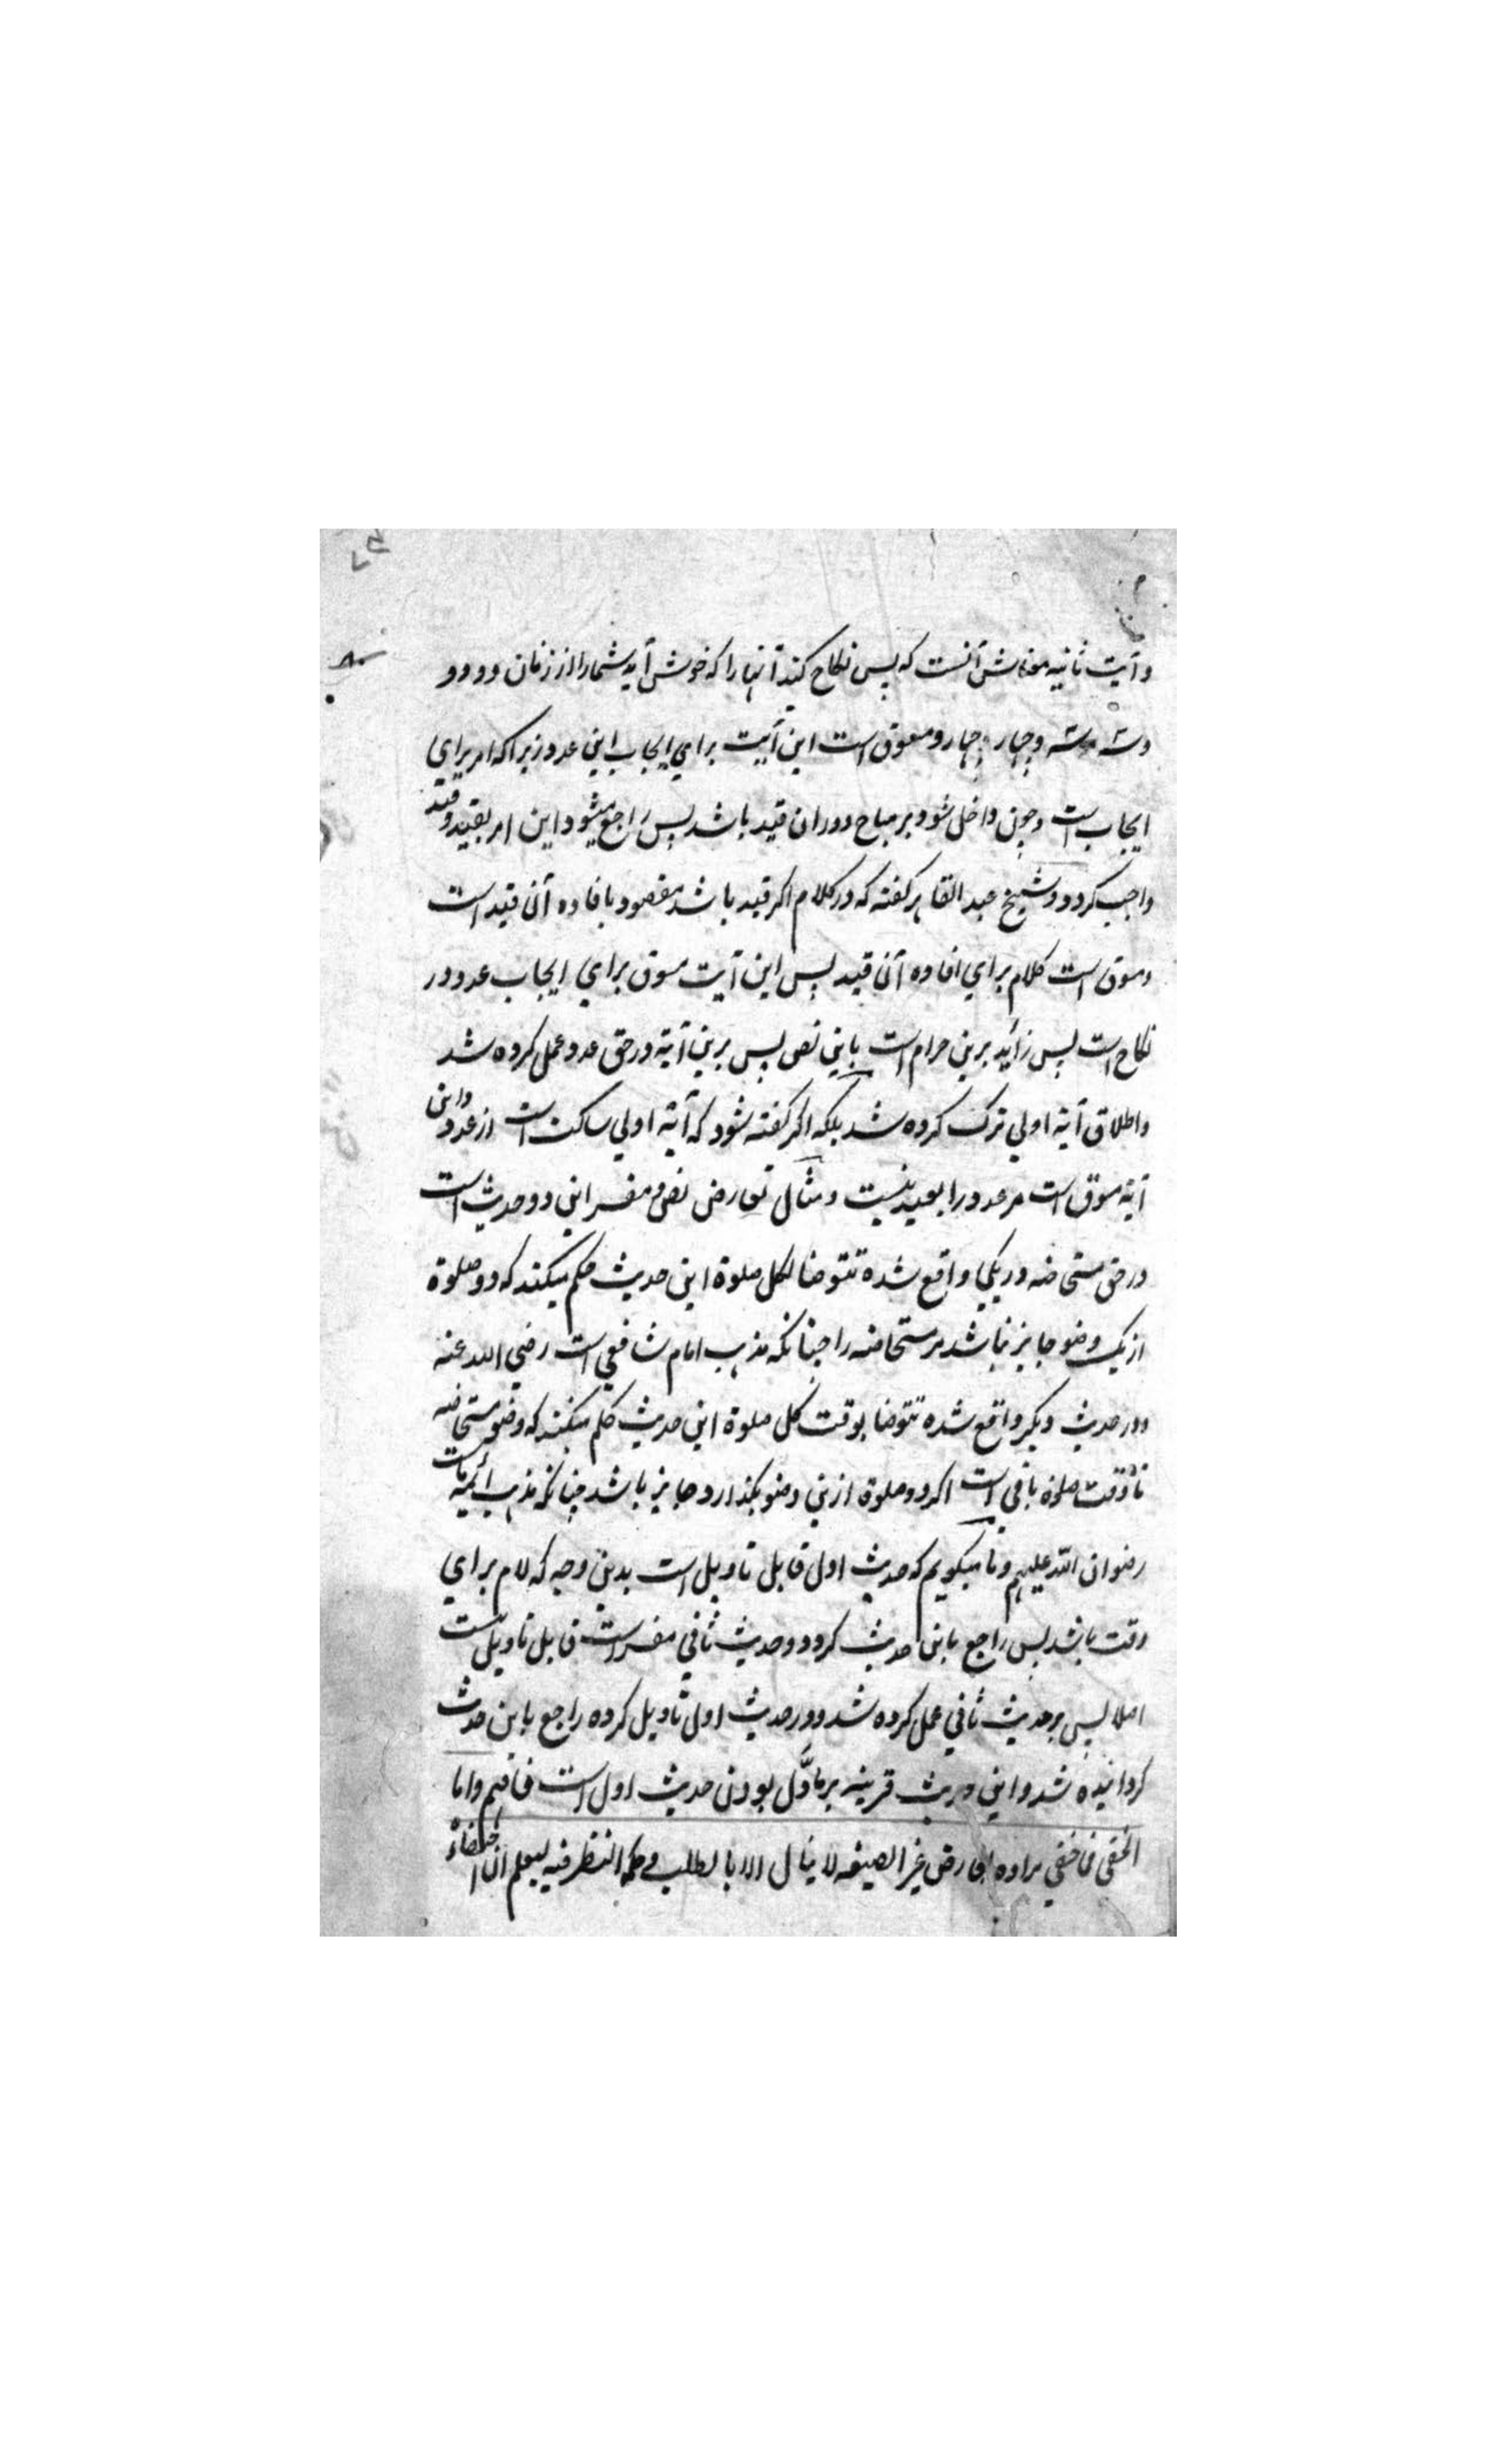 و آیت ثانیه معناش آنست که پس نکاح کنید آنها را که خوش آید شما را از زنان دو دو
و سه سه و چهار چهار و مسوق است این آیت برای ایجاب این عدد زیرا که امر برای
ایجاب است و چون داخل شود بر مباح و دران قید باشد پس راجع میشود این امر بقید و قید
واجب کردد و شیخ عبد القاهر کفته که در کلام اکر قید باشد مقصود بافاده آن قید است
و مسوق است کلام برای افاده آن قید پس این آیت مسوق برای ایجاب عدد در
نکاح است پس زائد برین حرام است باین نص پس برین آیة در حق عدد عمل کرده شد
و اطلاق آیة اولی ترک کرده شد بلکه اکر کفته شود که آیة اولی ساکت است از عدد و این
آیة مسوق است مر عدد را بعید نیست و مثال تعارض نص و مفسر این دو حدیث است
در حق مستحاضه در یکی واقع شده تتوضا لکل صلوة این حدیث حکم میکند که دو صلوة
از یک وضو جایز نباشد مر مستحاضه را چنانکه مذهب امام شافعی است رضی الله عنه
و در حدیث دیکر واقع شده تتوضا بوقت کل صلوة این حدیث حکم میکند که وضو مستحاضه
تا وقت صلوة باقی است اکر دو صلوة ازین وضو بکذارد جایز باشد چنانکه مذهب ائمه ماست
رضوان الله علیهم و ما میکویم که حدیث اول قابل تاویل است بدین وجه که لام برای
وقت باشد پس راجع باین حدیث کردد و حدیث ثانی مفسر است قابل تاویل نیست
اصلا پس بر حدیث ثانی عمل کرده شد و در حدیث اول تاویل کرده راجع باین حدیث
کردانیده شد و این حدیث قرینه بر مأوّل بودن حدیث اول است فافهم و اما
الخفی فما خفی مراده بعارض غیر الصیغه لا ینال الا بالطلب و حکمه النظر فیه لیعلم ان اختفاءه